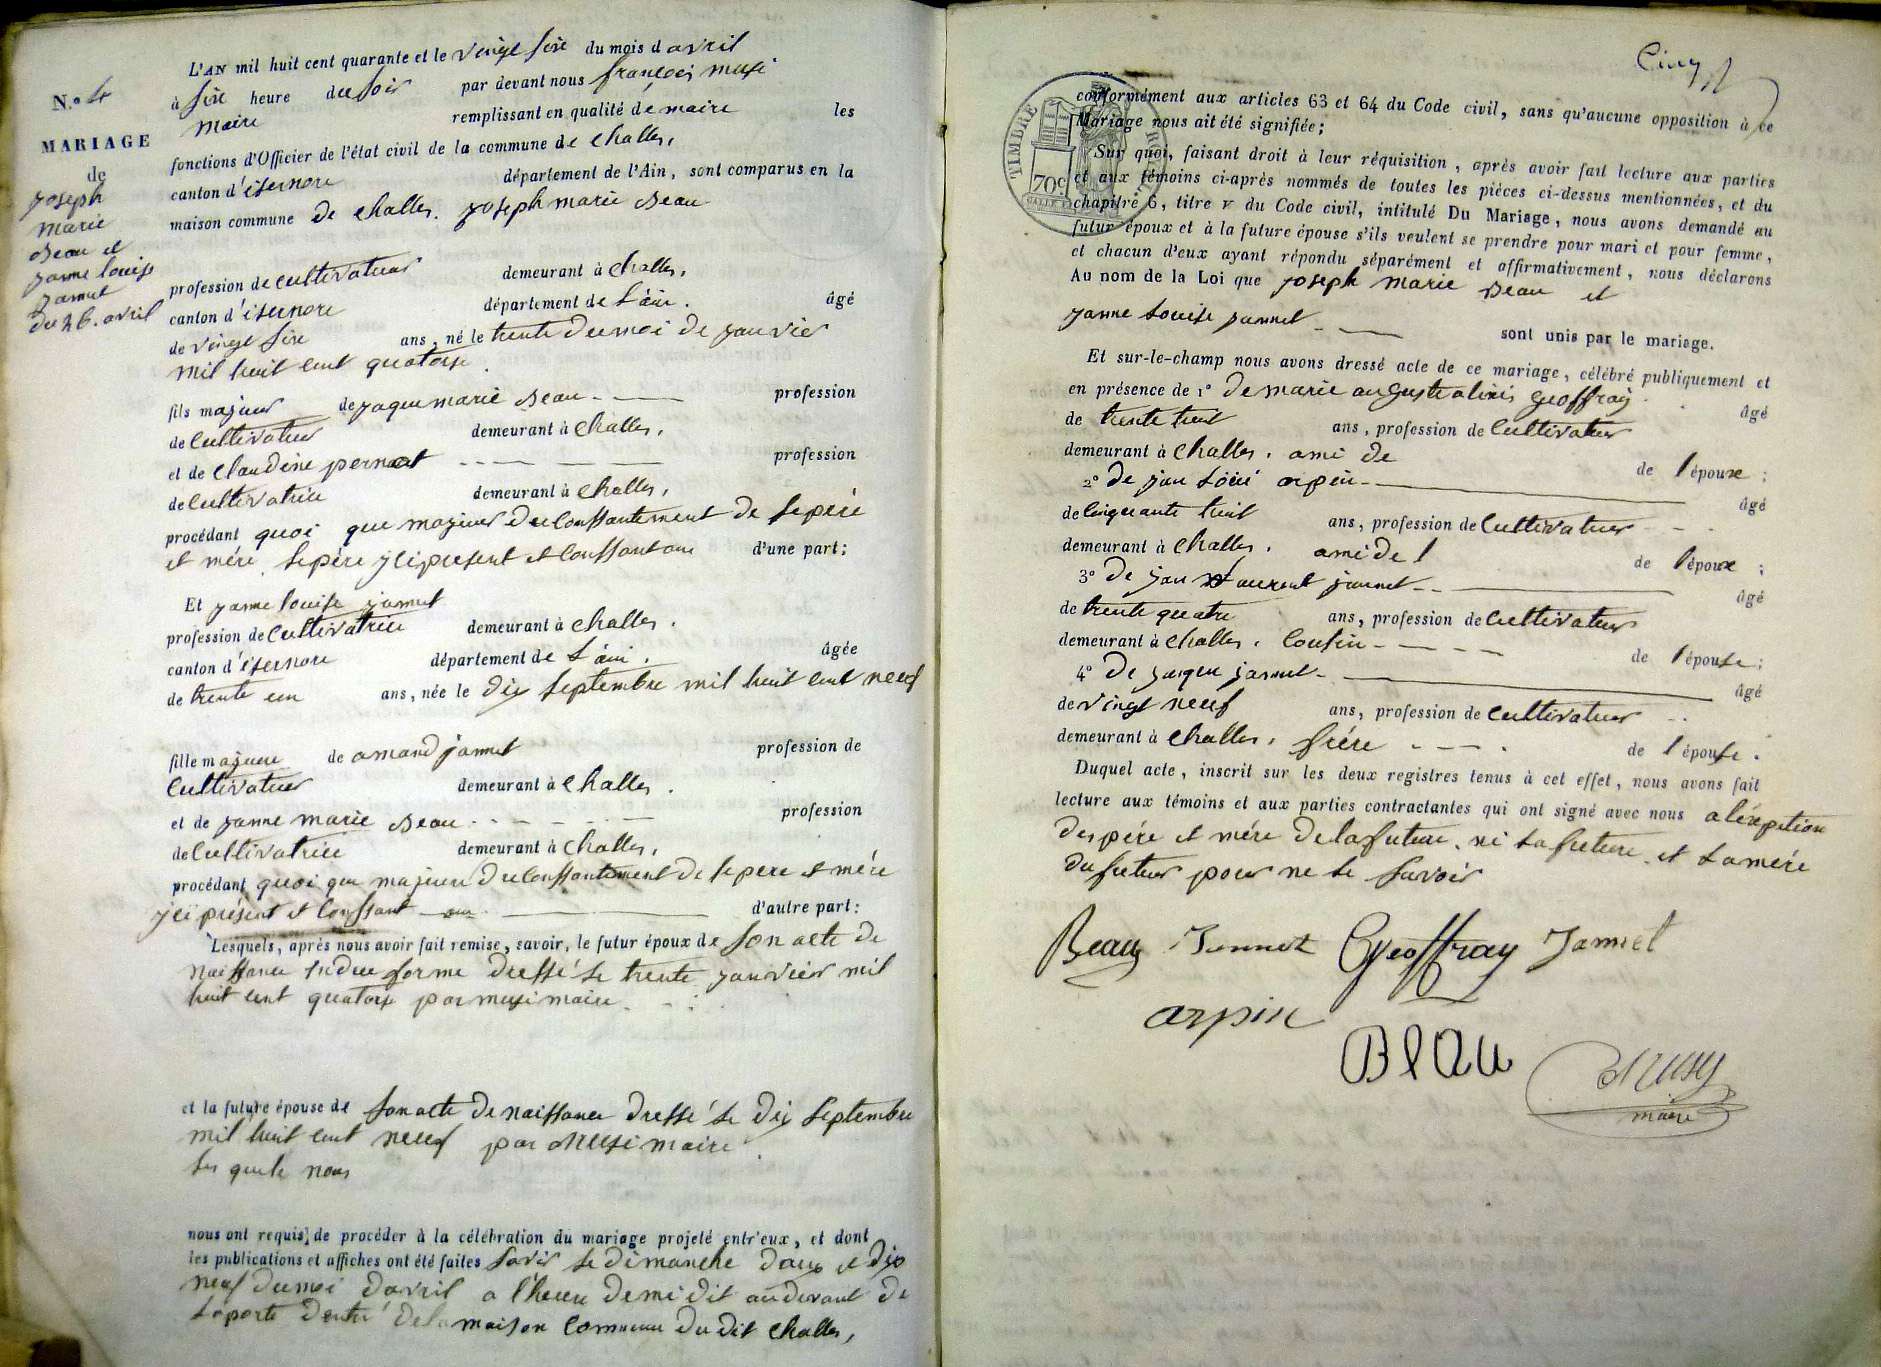 N.° 4
MARIAGE
de
joseph
marie
Beau et
janne louise
jannet
du 26. avril
L'AN mil huit cent quarante et le vingt sixe du mois d avril
à sixe heure du soir par devant nous françois musi
maire remplissant en qualité de maire les
fonctions d'Officier de l'état civil de la commune de challes,
canton d'isernore département de l'Ain, sont comparus en la
maison commune de challes. joseph marie Beau
profession de cultivateur demeurant à challes,
canton d'isernore département de L'ain. âgé
de vingt sixe ans, né le trente du moi de janvier
mil huit cent quatorze
fils majeur de jaque marie Beau profession
de cultivateur demeurant à challes,
et de claudine pernet profession
de cultivatrice demeurant à challes,
procédant quoi que majeur du conssantement de sepéré
et mére sepére ycipresent et conssantan d'une part;
Et janne louise jannet
profession de cultivatrice demeurant à challes.
canton d'isernore département de L'ain. âgée
de trente un ans, née le dix septembre mil huit cent neuf
fille majeure de amand jannet profession de
cultivateur demeurant à challes.
et de janne marie Beau profession
de cultivatrice demeurant à challes,
procédant quoi que majeure du conssantement de se pere et mére
yci présent et conssant d'autre part:
Lesquels, après nous avoir fait remise, savoir, le futur époux de son acte de
naissance en due forme dressé le trente janvier mil
huit cent quatorze par musi maire
et la future épouse de son acte de naissance dressé le dix septembre
mil huit cent neuf par Musi maire
les quels nous
nous ont requis de procéder à la célébration du mariage projeté entr'eux, et dont
les publications et affiches ont été faites savoir le dimanche douze et dix
neuf du moi d'avril a l'heure de mi dit au devant de
la porte dentré de la maison commune du dit challes,
Cinq
TIMBRE ROYAL
70c
conformément aux articles 63 et 64 du Code civil, sans qu'aucune opposition à ce
Mariage nous ait été signifiée;
Sur quoi, faisant droit à leur réquisition, après avoir fait lecture aux parties
et aux témoins ci-après nommés de toutes les pièces ci-dessus mentionnées, et du
chapitre 6, titre v du Code civil, intitulé Du Mariage, nous avons demandé au
futur époux et à la future épouse s'ils veulent se prendre pour mari et pour femme,
et chacun d'eux ayant répondu séparément et affirmativement, nous déclarons
Au nom de la Loi que joseph marie Beau et
janne Louise jannet sont unis par le mariage.
Et sur-le-champ nous avons dressé acte de ce mariage, célébré publiquement et
en présence de 1° de marie auguste alixis geoffray âgé
de trente huit ans, profession de cultivateur
demeurant à challes. ami de de l'épouxe;
2° de jan Loüi arpin âgé
de cinquante huit ans, profession de cultivateur
demeurant à challes. ami de l de l'époux;
3° de jan laurent jannet âgé
de trente quatre ans, profession de cultivateur
demeurant à challes. cousin de l'épouse;
4° de jaque jannet âgé
de vingt neuf ans, profession de cultivateur
demeurant à challes, frére de l'épouse.
Duquel acte, inscrit sur les deux registres tenus à cet effet, nous avons fait
lecture aux témoins et aux parties contractantes qui ont signé avec nous a léxeption
des pére et mére de la future. ni la future. et la mére
du futur pour ne le savoir
Beau Jannet Geoffray Jannet
arpin
BEAU
Musy
maire